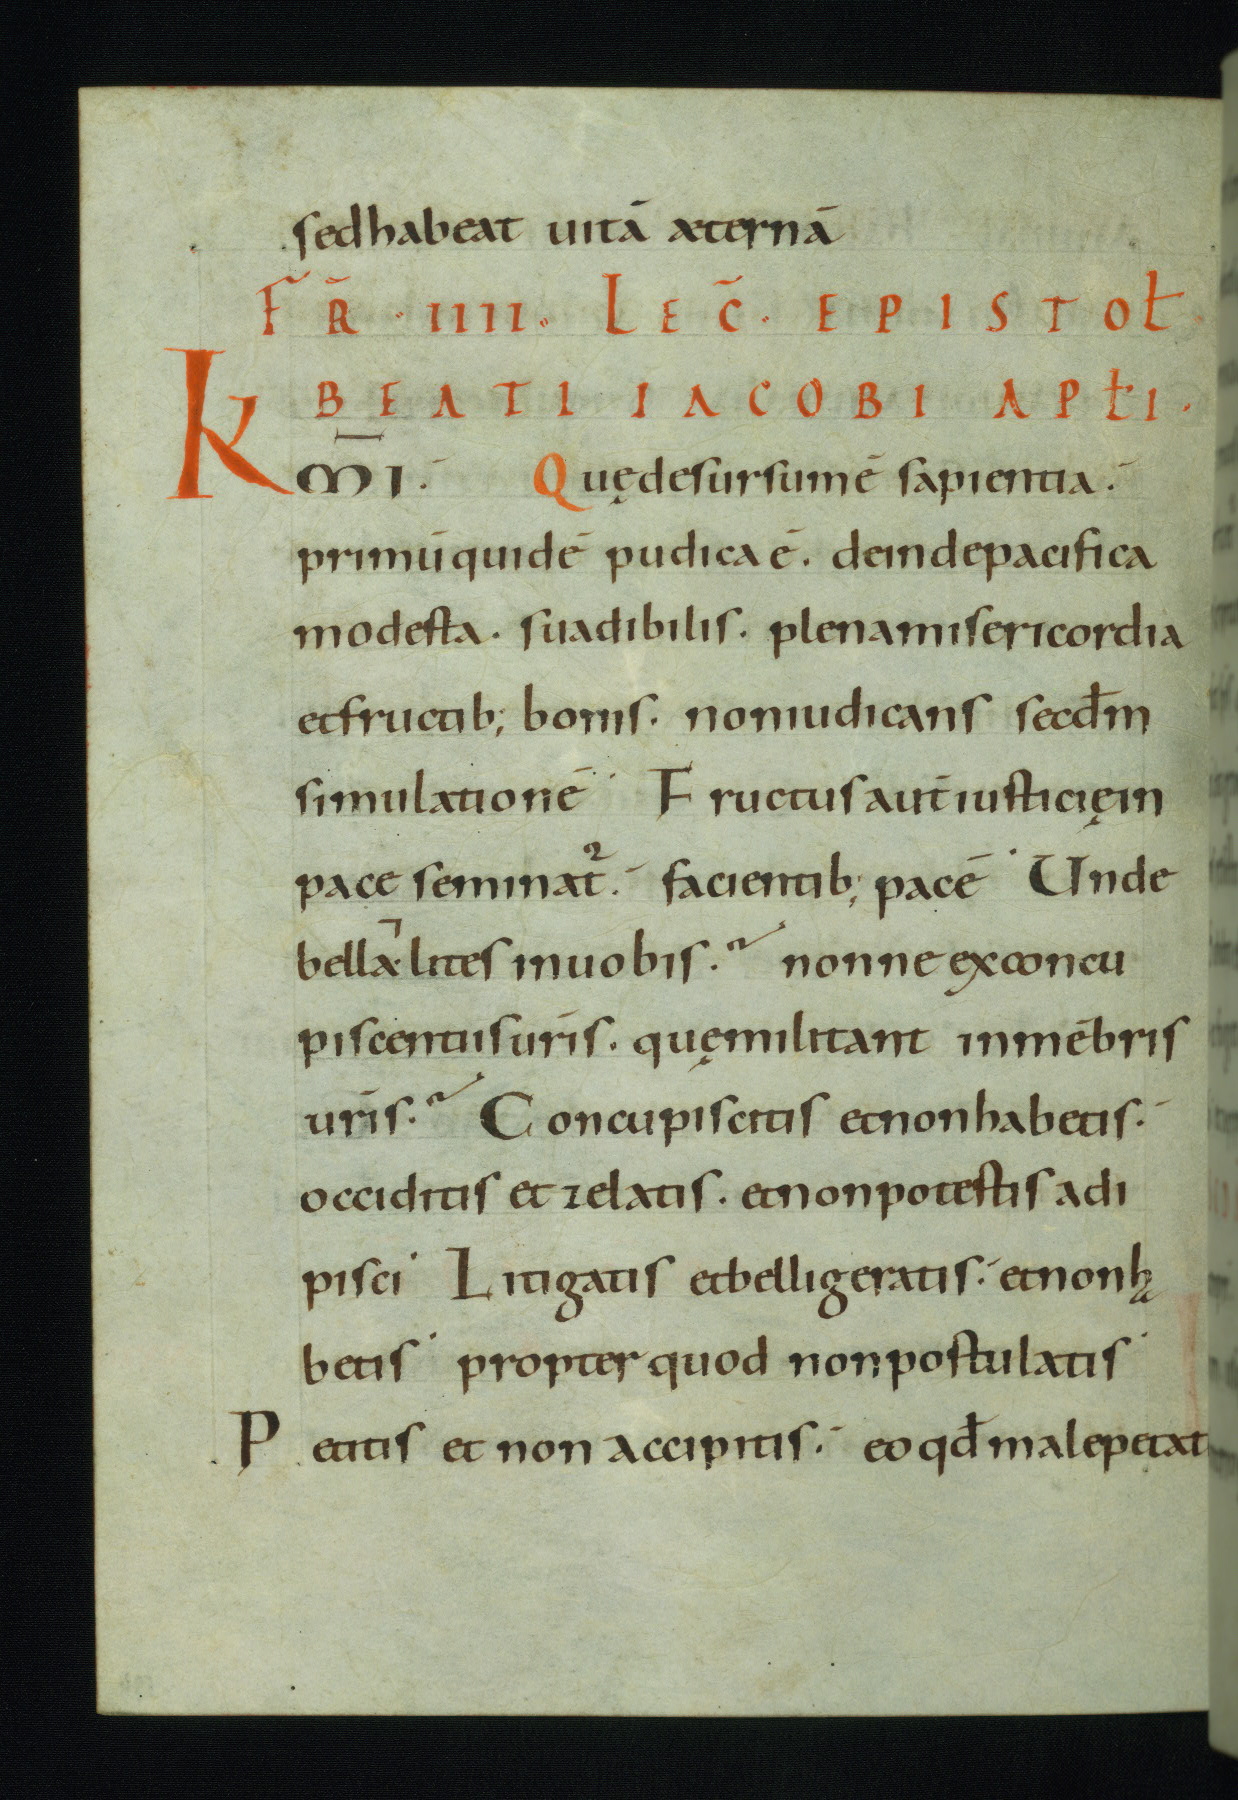 sed habeat uitā æternā
FR̄ · IIII · LEC̄ · EPISTOŁ ·
BEATI IACOBI APŁI ·
KM̄I · Quę desursum ē sapientia ·
primū quidē pudica ē . deinde pacifica
modesta · suadibilis · plena misericordia
et fructib; bonis · non iudicans secđm
simulationē · Fructus aut̄ iusticię in
pace seminat᷑ · facientib; pacē · Unde
bella ⁊ lites in uobis · nonne ex concu
piscentiis ur̄is · quę militant in mēbris
ur̄is · Concupiscitis et non habetis ·
occiditis et zelatis · et non potestis adi
pisci · Litigatis et belligeratis · et non ha
betis · propter quod non postulatis ·
Petitis et non accipitis · eo qđ male petat